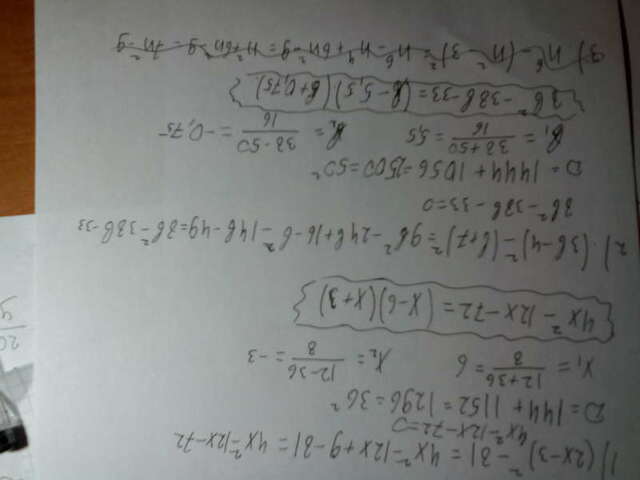 1) (2x-3)² - 81 = 4x² - 12x + 9 - 81 = 4x² - 12x - 72
4x² - 12x - 72 = 0
D = 144 + 1152 = 1296 = 36²
x₁ = (12+36)/8 = 6 x₂ = (12-36)/8 = -3
4x² - 12x - 72 = (x-6)(x+3)
2) (3b-4)² - (b+7)² = 9b² - 24b + 16 - b² - 14b - 49 = 8b² - 38b - 33
8b² - 38b - 33 = 0
D = 1444 + 1056 = 2500 = 50²
b₁ = (38+50)/16 = 5,5 b₂ = (38-50)/16 = -0,75
8b² - 38b - 33 = (b-5,5)(b+0,75)
3) n⁶ - (n² - 3)² = n⁶ - n⁴ + 6n² - 9 = n²+6n² - 9 = 7n² - 9
20
9